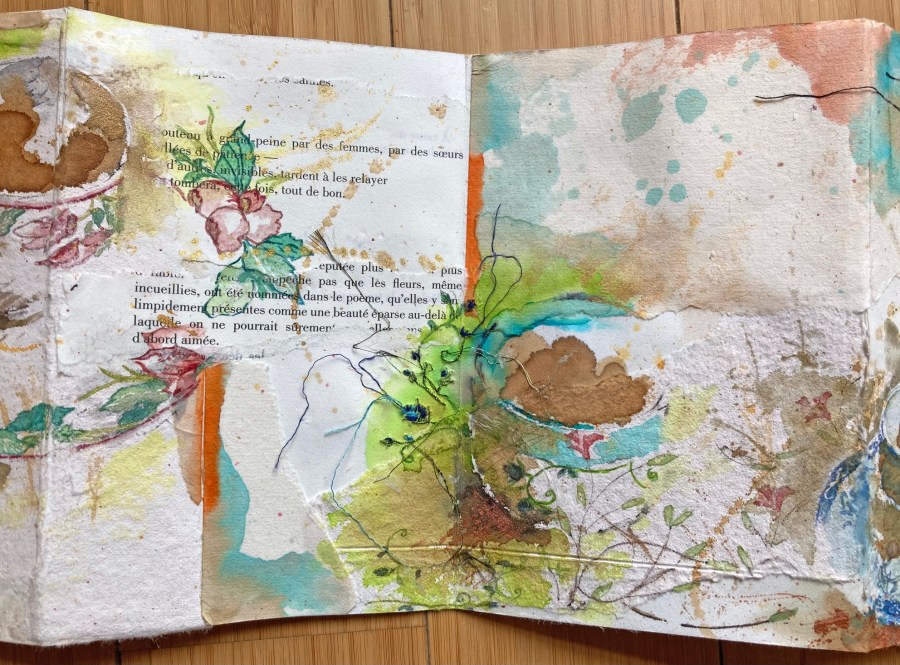 outeau à grand-peine par des femmes, par des sœurs
llées de patience —
d'autres, invisibles, tardent à les relayer
tombera, fois, tout de bon.
eputée plus plus
pêche pas que les fleurs, même
incueillies, ont été nommées dans le poème, qu'elles y
limpidement présentes comme une beauté éparse au-delà
laquelle on ne pourrait sûrement
d'abord aimée.